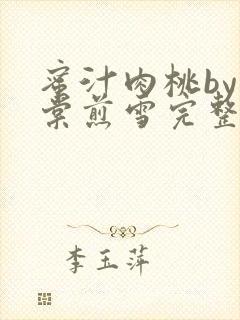 蜜汁肉桃by
棠煎雪完整
李玉萍